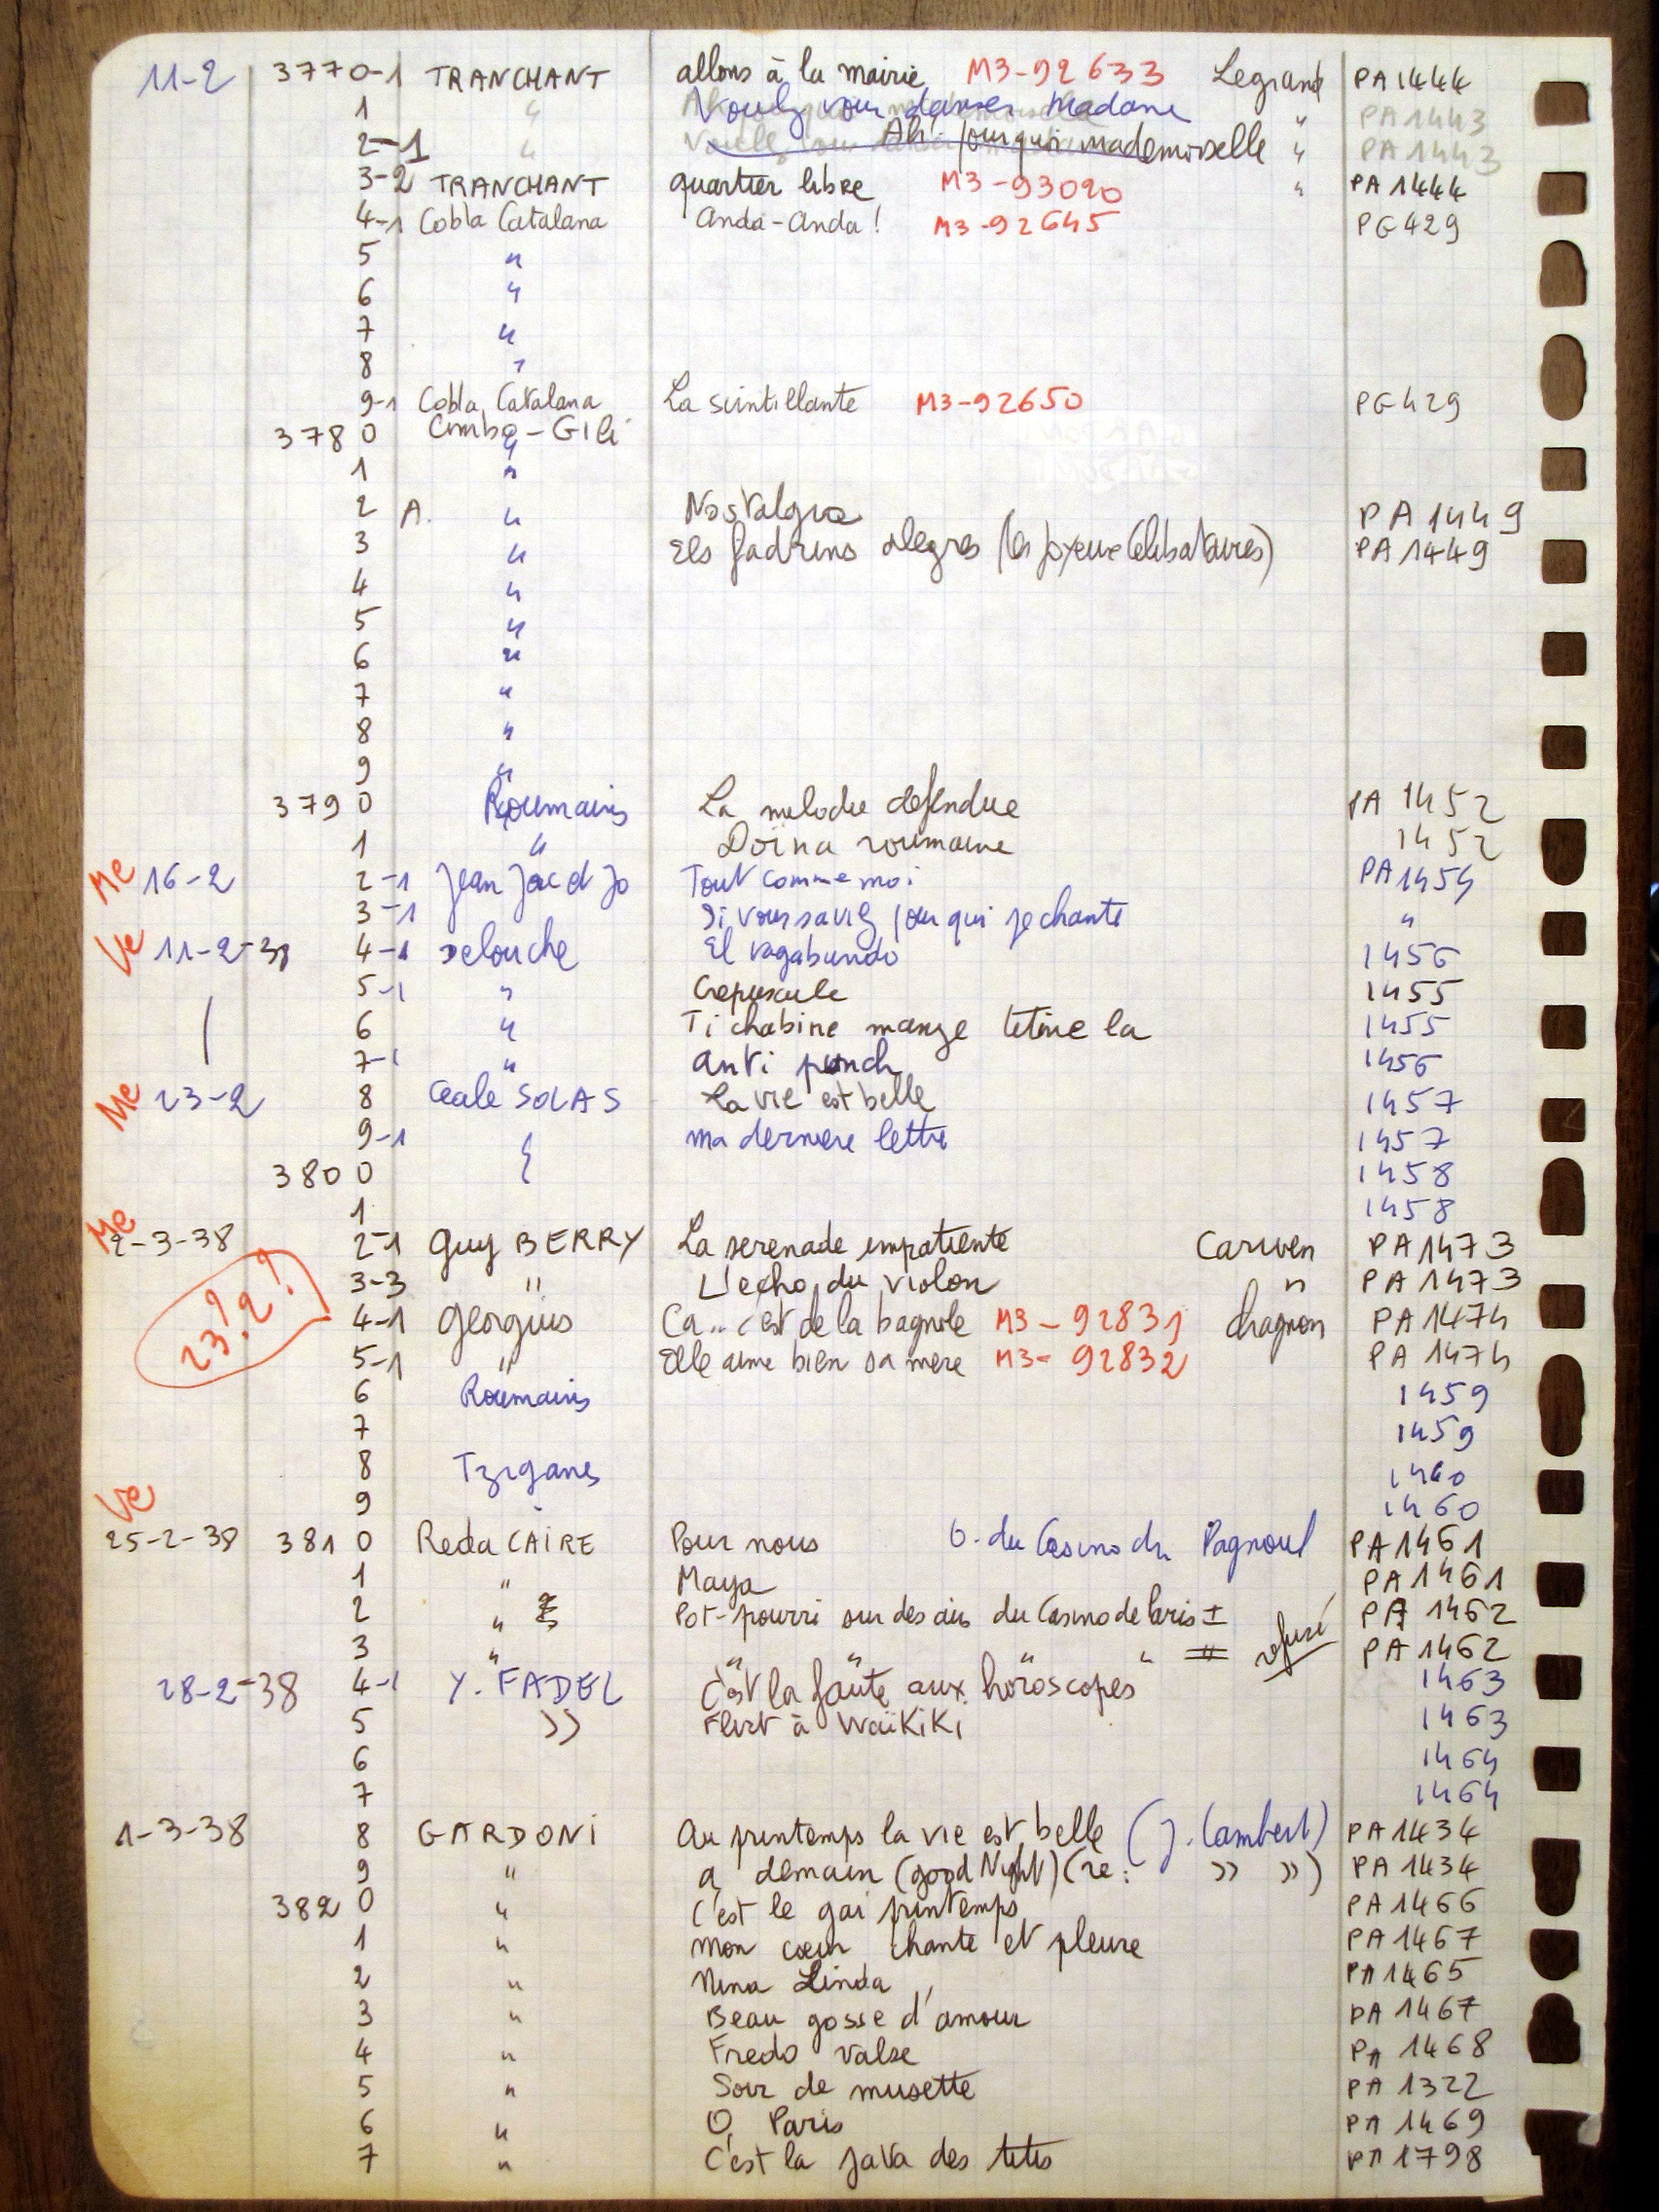 11-2 3770-1 TRANCHANT allons à la mairie M3-92633 Legrand PA1444
1 " Voulez vous danser madame " PA1443
2-1 " Ah! pourquoi mademoiselle " PA1443
3-2 TRANCHANT quartier libre M3-93020 " PA1444
4-1 Cobla Catalana Anda-Anda! M3-92645 PG429
5 "
6 "
7 "
8 "
9-1 Cobla Catalana La scintillante M3-92650 PG429
3780 Comba-Gili
1 "
2 A. " Nostalgia PA1449
3 " Els fadrins alegres (les joyeux célibataires) PA1449
4 "
5 "
6 "
7 "
8 "
9 "
3790 Roumains La melodie defendue PA 1452
1 " Doïna roumaine 1452
Me 16-2 2-1 Jean Jac et Jo Tout comme moi PA1454
3-1 Si vous saviez pour qui je chante "
Ve 11-2-38 4-1 Delouche El vagabundo 1456
5-1 " Crepuscule 1455
6 " Ti chabine manze tetine la 1455
7-1 " anti punch 1456
Me 23-2 8 Cecile SOLAS La vie est belle 1457
9-1 ma derniere lettre 1457
3800 1458
1 1458
Me 2-3-38 2-1 Guy BERRY La serenade impatiente Cariven PA1473
3-3 " L'echo du violon " PA1473
23?2? 4-1 Georgius Ca... c'est de la bagnole M3-92831 Chagnon PA1474
5-1 " Elle aime bien sa mere M3-92832 PA1474
6 Roumains 1459
7 1459
8 Tziganes 1460
Ve 9 1460
25-2-38 3810 Reda CAIRE Pour nous O. du Casino de Pagnoul PA1461
1 " Maya PA1461
2 " Pot-pourri sur des airs du Casino de Paris I PA1462
3 " " " " " II refusé PA1462
28-2-38 4-1 Y. FADEL C'est la faute aux horoscopes 1463
5 " Flirt à WaïKiKi 1463
6 1464
7 1464
1-3-38 8 GARDONI Au printemps la vie est belle (J. Lambert) PA1434
9 " a demain (good Night) (re: " ") PA1434
3820 " C'est le gai printemps PA1466
1 " Mon cœur chante et pleure PA1467
2 " Nina Linda PA1465
3 " Beau gosse d'amour PA1467
4 " Fredo valse PA 1468
5 " Soir de musette PA 1322
6 " O, Paris PA 1469
7 " C'est la java des titis PA1798